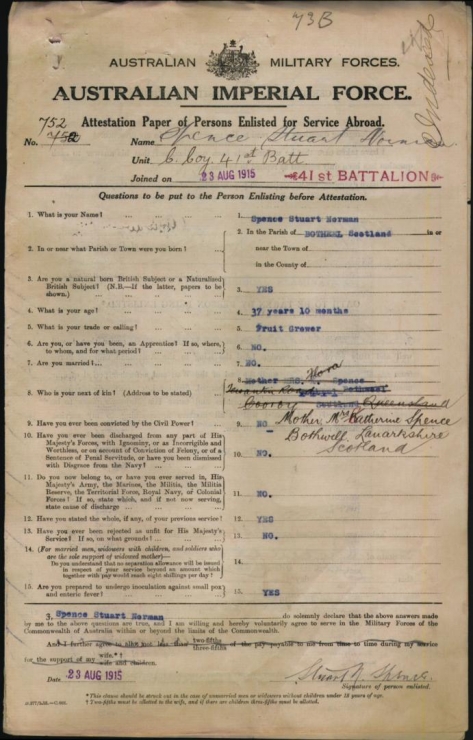 73B
AUSTRALIAN MILITARY FORCES.
AUSTRALIAN IMPERIAL FORCE.
Attestation Paper of Persons Enlisted for Service Abroad.
752
No. 752 Name Spence Stuart Norman
Unit C. Coy. 41st Batt
Joined on 23 AUG 1915 41st BATTALION
Questions to be put to the Person Enlisting before Attestation.
1. What is your Name? 1. Spence Stuart Norman
2. In or near what Parish or Town were you born? 2. In the Parish of BOTHWEL Scotland in or
near the Town of
in the County of
3. Are you a natural born British Subject or a Naturalised
British Subject? (N.B.—If the latter, papers to be
shown.) 3. YES
4. What is your age? 4. 37 years 10 months
5. What is your trade or calling? 5. Fruit Grower
6. Are you, or have you been, an Apprentice? If so, where,
to whom, and for what period? 6. NO.
7. Are you married? 7. NO.
8. Who is your next of kin? (Address to be stated) 8. Mother MRS. Flora Spence
Bothwel
Scotland Queensland
9. Have you ever been convicted by the Civil Power? 9. NO Mother Mrs Catherine Spence
Bothwell, Lanarkshire
Scotland
10. Have you ever been discharged from any part of His
Majesty's Forces, with Ignominy, or as Incorrigible and
Worthless, or on account of Conviction of Felony, or of a
Sentence of Penal Servitude, or have you been dismissed
with Disgrace from the Navy? 10. NO.
11. Do you now belong to, or have you ever served in, His
Majesty's Army, the Marines, the Militia, the Militia
Reserve, the Territorial Force, Royal Navy, or Colonial
Forces? If so, state which, and if not now serving,
state cause of discharge 11. NO.
12. Have you stated the whole, if any, of your previous service? 12. YES
13. Have you ever been rejected as unfit for His Majesty's
Service? If so, on what grounds? 13. NO.
14. (For married men, widowers with children, and soldiers who
are the sole support of widowed mother)—
Do you understand that no separation allowance will be issued
in respect of your service beyond an amount which
together with pay would reach eight shillings per day? 14.
15. Are you prepared to undergo inoculation against small pox
and enteric fever? 15. YES
3. Spence Stuart Norman do solemnly declare that the above answers made
by me to the above questions are true, and I am willing and hereby voluntarily agree to serve in the Military Forces of the
Commonwealth of Australia within or beyond the limits of the Commonwealth.
And I further agree to allot not less than two-fifths
three-fifths of the pay payable to me from time to time during my service
for the support of my wife.*†
wife and children.
Date 23 AUG 1915 Stuart N. Spence
Signature of person enlisted.
* This clause should be struck out in the case of unmarried men or widowers without children under 18 years of age.
† Two-fifths must be allotted to the wife, and if there are children three-fifths must be allotted.